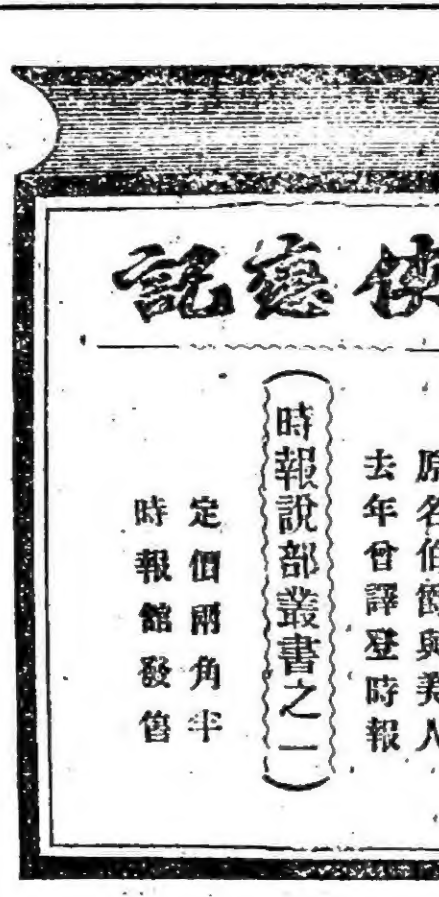 俠戀記
原名伯爵與美人
去年曾譯登時報
時報說部叢書之一
定價兩角半
時報館發售